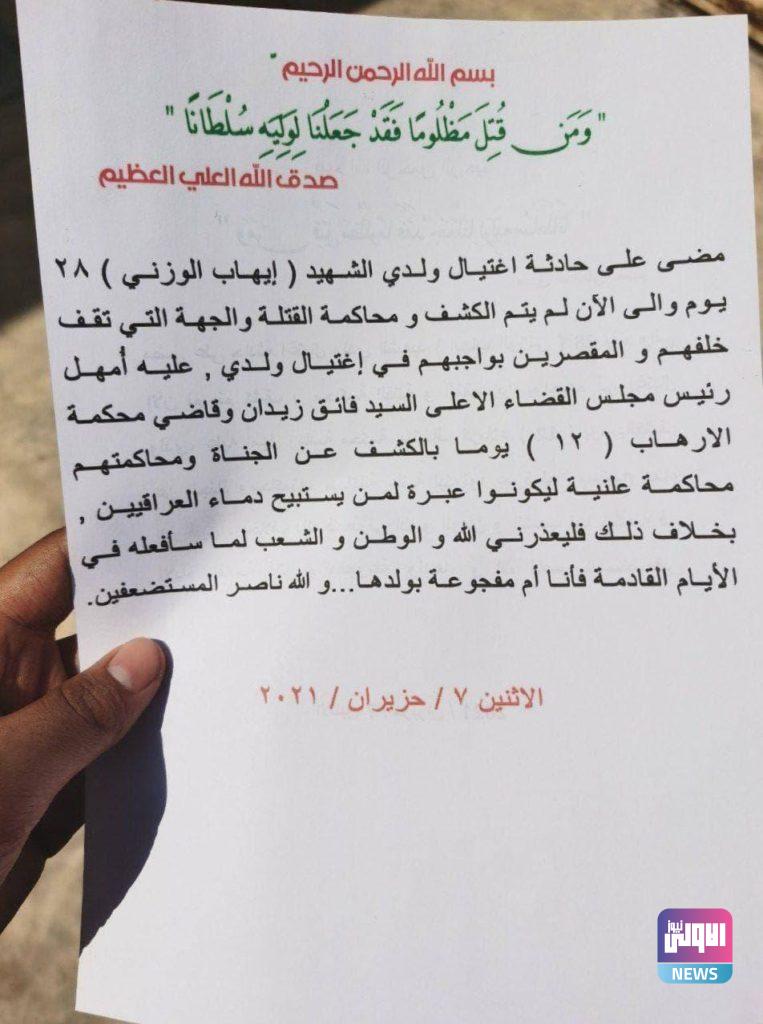 بسم الله الرحمن الرحيم
" وَمَن قُتِلَ مَظْلُومًا فَقَدْ جَعَلْنَا لِوَلِيِّهِ سُلْطَانًا "
صدق الله العلي العظيم
مضى على حادثة اغتيال ولدي الشهيد ( إيهاب الوزني ) ٢٨
يوم والى الآن لم يتم الكشف و محاكمة القتلة والجهة التي تقف
خلفهم و المقصرين بواجبهم في إغتيال ولدي , عليه أمهل
رئيس مجلس القضاء الاعلى السيد فائق زيدان وقاضي محكمة
الارهاب ( ١٢ ) يوما بالكشف عن الجناة ومحاكمتهم
محاكمة علنية ليكونوا عبرة لمن يستبيح دماء العراقيين ,
بخلاف ذلك فليعذرني الله و الوطن و الشعب لما سأفعله في
الأيام القادمة فأنا أم مفجوعة بولدها...و الله ناصر المستضعفين.
الاثنين ٧ / حزيران / ٢٠٢١
الاولى نيوز
NEWS